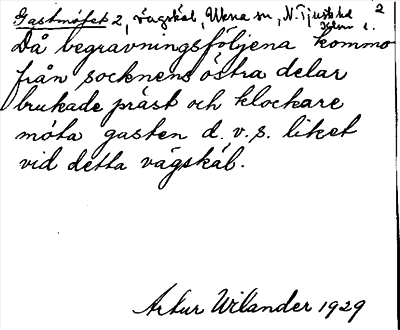 Gastmötet 2, vägskäl, Ukna sn, N. Tjust hd
2
Kalm l.
Då begravningsföljena kommo
från socknens östra delar
brukade präst och klockare
möta gasten d.v.s. liket
vid detta vägskäl.
Artur Wilander 1929